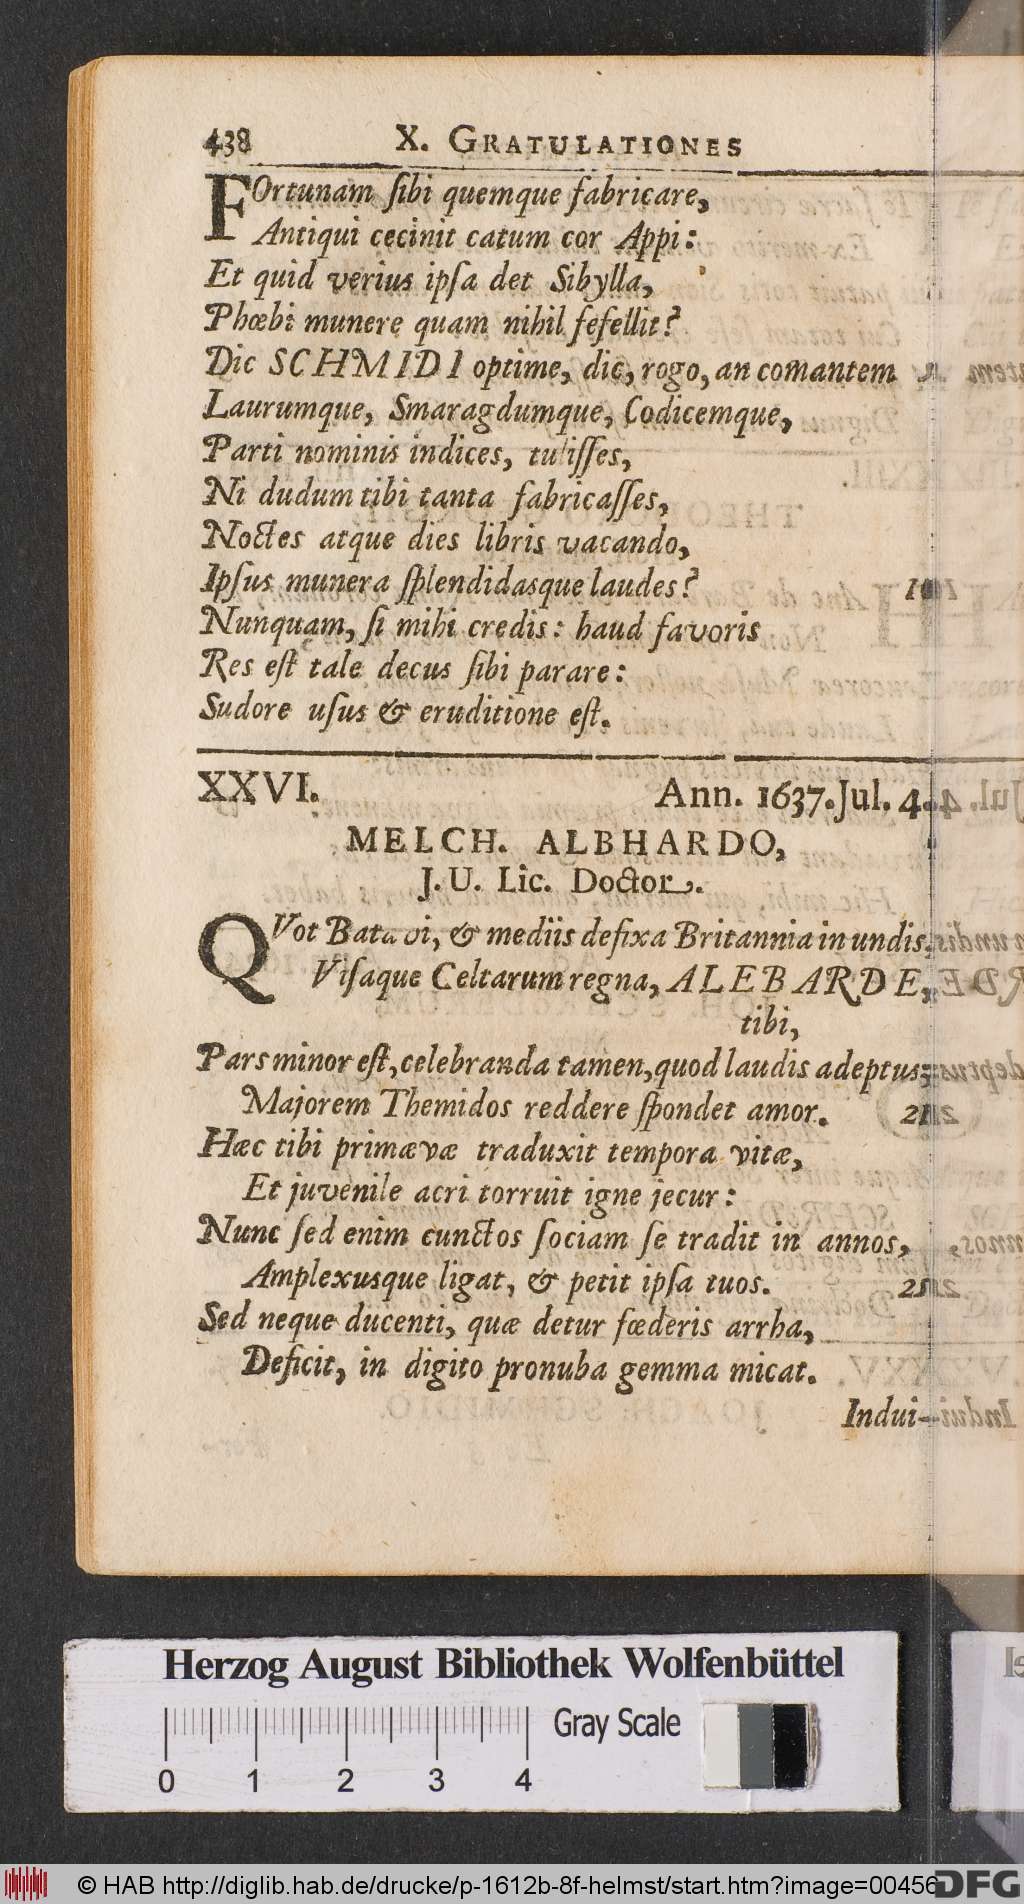 438 X. GRATULATIONES
FOrtunam ſibi quemque fabricare,
Antiqui cecinit catum cor Appi:
Et quid verius ipſa det Sibylla,
Phœbi munere quam nihil fefellit?
Dic SCHMIDI optime, dic, rogo, an comantem
Laurumque, Smaragdumque, Codicemque,
Parti nominis indices, tuliſſes,
Ni dudum tibi tanta fabricaſſes,
Noctes atque dies libris vacando,
Ipſus munera ſplendidasque laudes?
Nunquam, ſi mihi credis: haud favoris
Res eſt tale decus ſibi parare:
Sudore uſus & eruditione eſt.
XXVI. Ann. 1637. Jul. 4.
MELCH. ALBHARDO,
J. U. Lic. Doctor.
QVot Batavi, & mediis defixa Britannia in undis,
Viſaque Celtarum regna, ALEBARDE,
tibi,
Pars minor eſt, celebranda tamen, quod laudis adeptus;
Majorem Themidos reddere ſpondet amor.
Hæc tibi primævæ traduxit tempora vitæ,
Et juvenile acri torruit igne jecur:
Nunc ſed enim cunctos ſociam ſe tradit in annos,
Amplexusque ligat, & petit ipſa tuos.
Sed neque ducenti, quæ detur fœderis arrha,
Deficit, in digito pronuba gemma micat.
Indui-
Herzog August Bibliothek Wolfenbüttel
Gray Scale
0 1 2 3 4
© HAB http://diglib.hab.de/drucke/p-1612b-8f-helmst/start.htm?image=00456
DFG